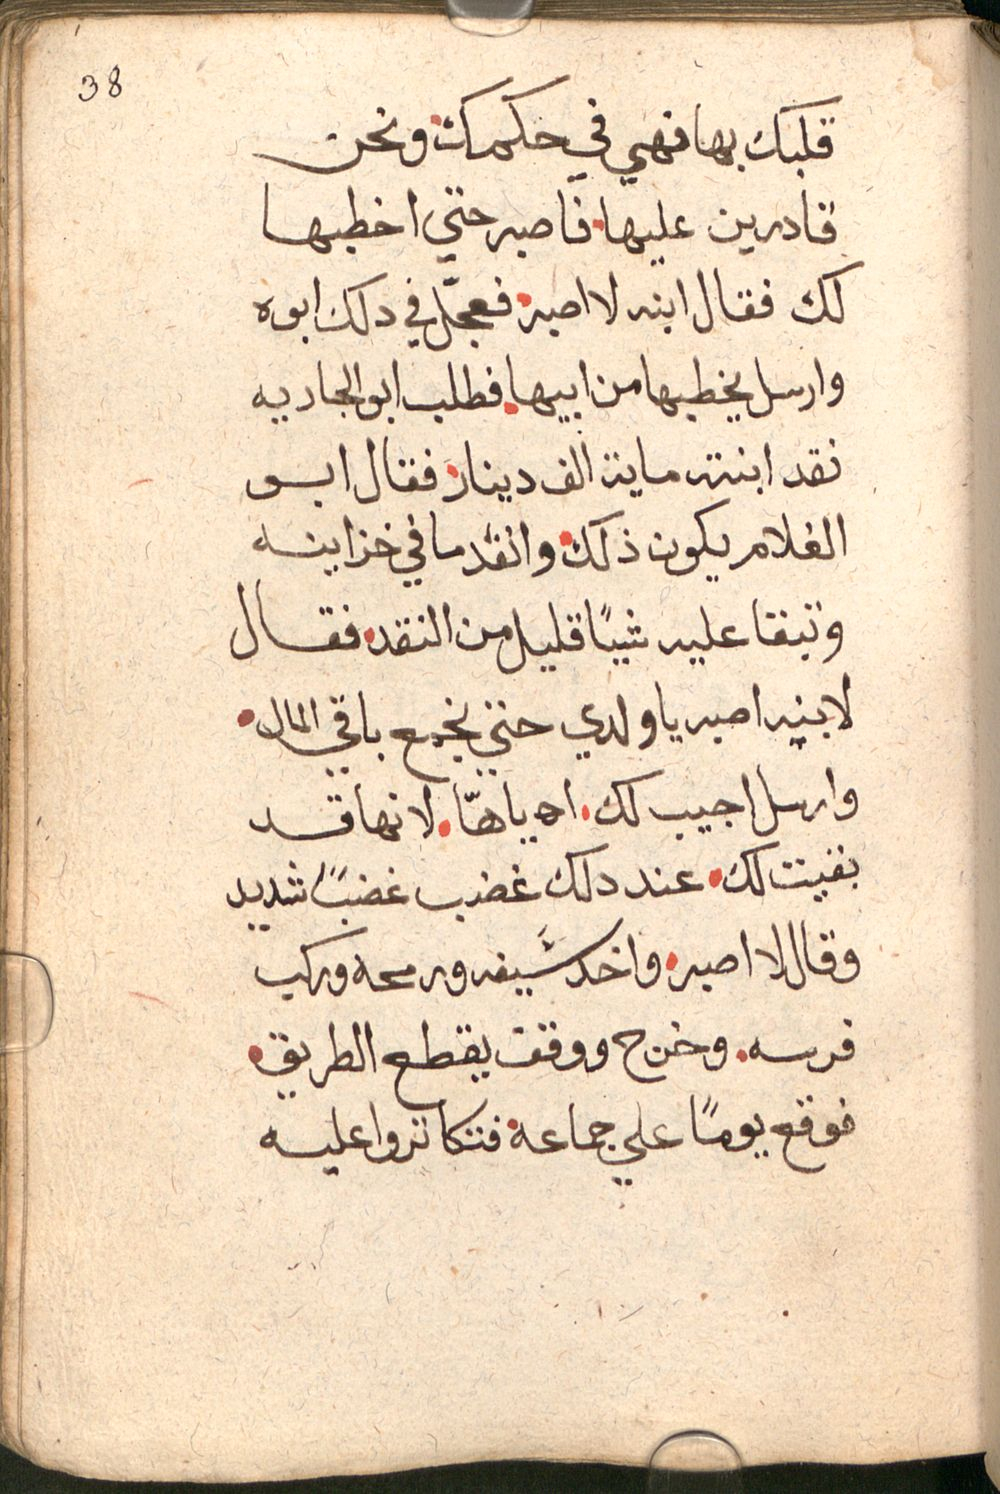 38
قلبك بها فهي في حكمك ونحن
قادرين عليها فاصبر حتي اخطبها
لك فقال ابنه لا اصبر فعجّل في دلك ابوه
وارسل يخطبها من ابيها فطلب ابو الجاريه
نقد ابنته ماية الف دينار فقال ابو
الغلام يكون ذلك وانقد ما في خزاينه
وتبقا عليه شيًا قليل من النقد فقال
لابنه اصبر يا ولدي حتي نجمع باقي المال
وارسل اجيب لك اياهّا لانها قد
بقيت لك عند دلك غضب غضبًا شديد
وقال لا اصبر واخد سيفه ورمحه وركب
فرسه وخرج ووقف يقطع الطريق
فوقع يومًا علي جماعة فتكاتروا عليه